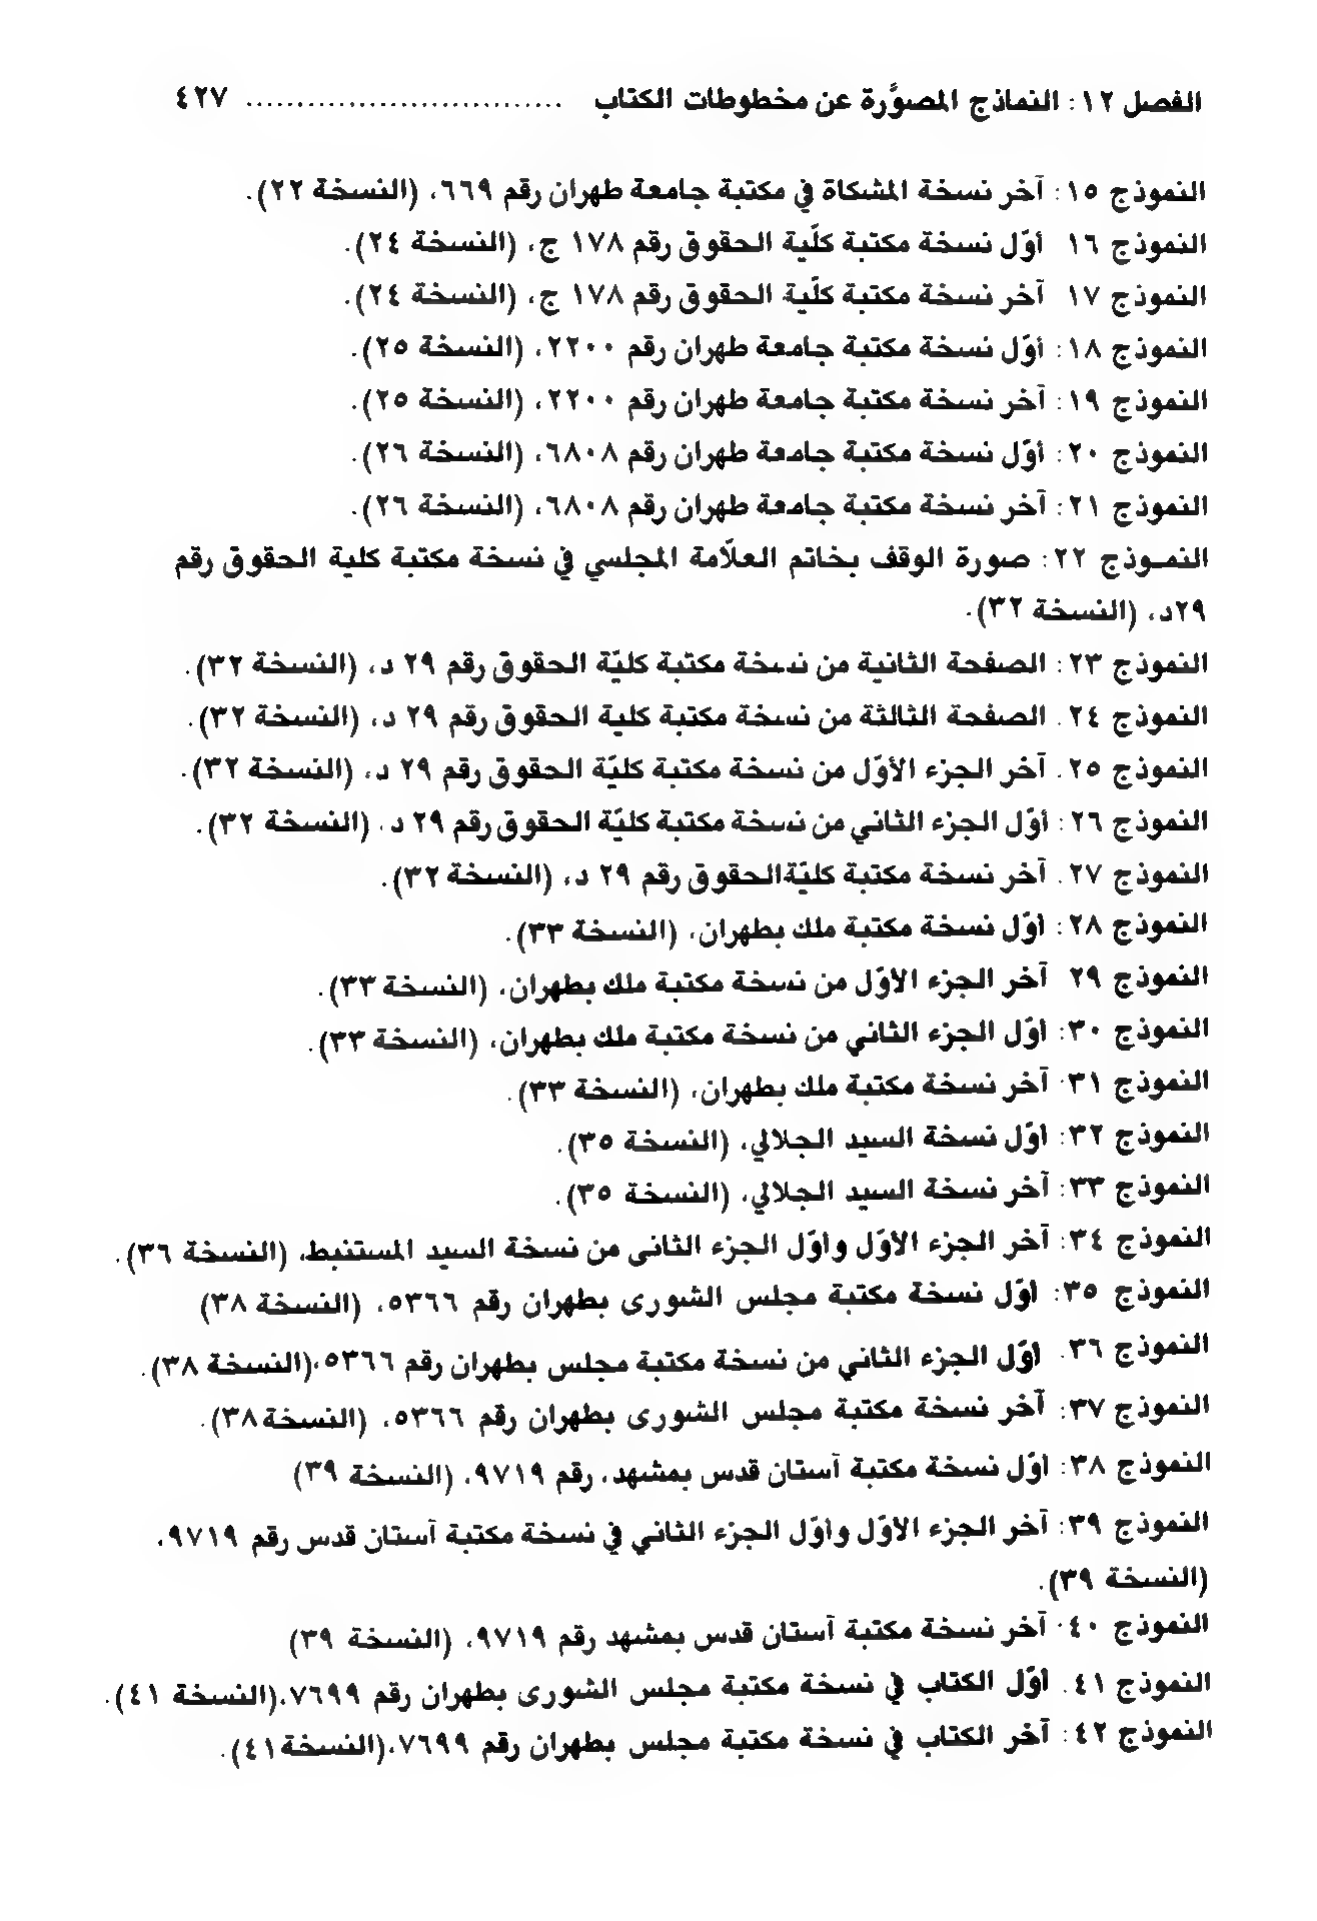 الفصل ١٢: النماذج المصوَّرة عن مخطوطات الكتاب ................................ ٤٢٧
النموذج ١٥: آخر نسخة المشكاة في مكتبة جامعة طهران رقم ٦٦٩، (النسخة ٢٢).
النموذج ١٦ أوّل نسخة مكتبة كلّية الحقوق رقم ١٧٨ ج، (النسخة ٢٤).
النموذج ١٧ آخر نسخة مكتبة كلّية الحقوق رقم ١٧٨ ج، (النسخة ٢٤).
النموذج ١٨: أوّل نسخة مكتبة جامعة طهران رقم ٢٢٠٠، (النسخة ٢٥).
النموذج ١٩: آخر نسخة مكتبة جامعة طهران رقم ٢٢٠٠، (النسخة ٢٥).
النموذج ٢٠: أوّل نسخة مكتبة جامعة طهران رقم ٦٨٠٨، (النسخة ٢٦).
النموذج ٢١: آخر نسخة مكتبة جامعة طهران رقم ٦٨٠٨، (النسخة ٢٦).
النمـوذج ٢٢: صورة الوقف بخاتم العلّامة المجلسي في نسخة مكتبة كلية الحقوق رقم
٢٩د، (النسخة ٣٢).
النموذج ٢٣: الصفحة الثانية من نسخة مكتبة كليّة الحقوق رقم ٢٩ د، (النسخة ٣٢).
النموذج ٢٤. الصفحة الثالثة من نسخة مكتبة كلية الحقوق رقم ٢٩ د، (النسخة ٣٢).
النموذج ٢٥. آخر الجزء الأوّل من نسخة مكتبة كليّة الحقوق رقم ٢٩ د، (النسخة ٣٢).
النموذج ٢٦: أوّل الجزء الثاني من نسخة مكتبة كليّة الحقوق رقم ٢٩ د، (النسخة ٣٢).
النموذج ٢٧. آخر نسخة مكتبة كليّةالحقوق رقم ٢٩ د، (النسخة ٣٢).
النموذج ٢٨: أوّل نسخة مكتبة ملك بطهران، (النسخة ٣٣).
النموذج ٢٩ آخر الجزء الأوّل من نسخة مكتبة ملك بطهران، (النسخة ٣٣).
النموذج ٣٠: أوّل الجزء الثاني من نسخة مكتبة ملك بطهران، (النسخة ٣٣).
النموذج ٣١: آخر نسخة مكتبة ملك بطهران، (النسخة ٣٣).
النموذج ٣٢: أوّل نسخة السيد الجلالي، (النسخة ٣٥).
النموذج ٣٣: آخر نسخة السيد الجلالي، (النسخة ٣٥).
النموذج ٣٤: آخر الجزء الأوّل وأوّل الجزء الثانى من نسخة السيد المستنبط، (النسخة ٣٦).
النموذج ٣٥: أوّل نسخة مكتبة مجلس الشورى بطهران رقم ٥٣٦٦، (النسخة ٣٨)
النموذج ٣٦. أوّل الجزء الثاني من نسخة مكتبة مجلس بطهران رقم ٥٣٦٦،(النسخة ٣٨).
النموذج ٣٧: آخر نسخة مكتبة مجلس الشورى بطهران رقم ٥٣٦٦، (النسخة٣٨).
النموذج ٣٨: أوّل نسخة مكتبة آستان قدس بمشهد، رقم ٩٧١٩، (النسخة ٣٩)
النموذج ٣٩: آخر الجزء الأوّل وأوّل الجزء الثاني في نسخة مكتبة آستان قدس رقم ٩٧١٩،
(النسخة ٣٩).
النموذج ٤٠: آخر نسخة مكتبة آستان قدس بمشهد رقم ٩٧١٩، (النسخة ٣٩)
النموذج ٤١. أوّل الكتاب في نسخة مكتبة مجلس الشورى بطهران رقم ٧٦٩٩،(النسخة ٤١).
النموذج ٤٢: آخر الكتاب في نسخة مكتبة مجلس بطهران رقم ٧٦٩٩،(النسخة٤١).